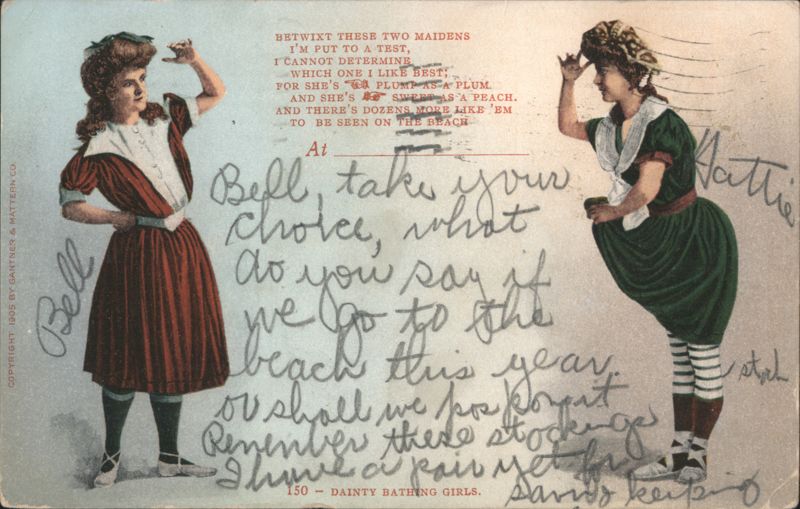 BETWIXT THESE TWO MAIDENS
I'M PUT TO A TEST,
I CANNOT DETERMINE
WHICH ONE I LIKE BEST;
FOR SHE'S PLUMP AS A PLUM
AND SHE'S SWEET AS A PEACH.
AND THERE'S DOZENS MORE LIKE 'EM
TO BE SEEN ON THE BEACH
At
Bell, take your
choice, what
do you say if
we go to the
beach this year.
or shall we pospone it
Remember these stockings
I have a pair yet for
saving keeping
Bell
Hattie
150 - DAINTY BATHING GIRLS.
COPYRIGHT 1905 BY GANTNER & MATTERN CO.